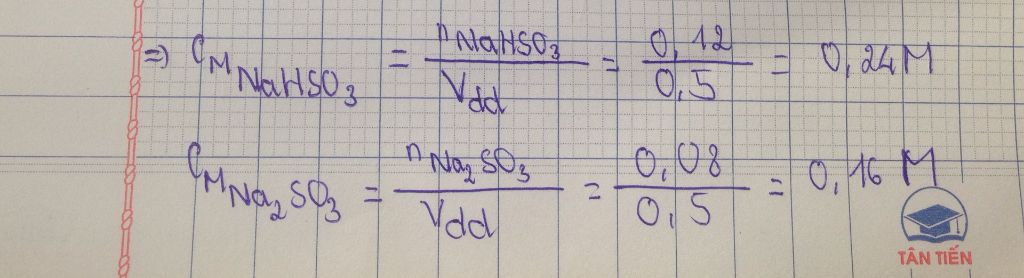 => CM NaHSO3 = nNaHSO3 / Vdd = 0,12 / 0,5 = 0,24M
CM Na2SO3 = nNa2SO3 / Vdd = 0,08 / 0,5 = 0,16 M
TÂN TIẾN